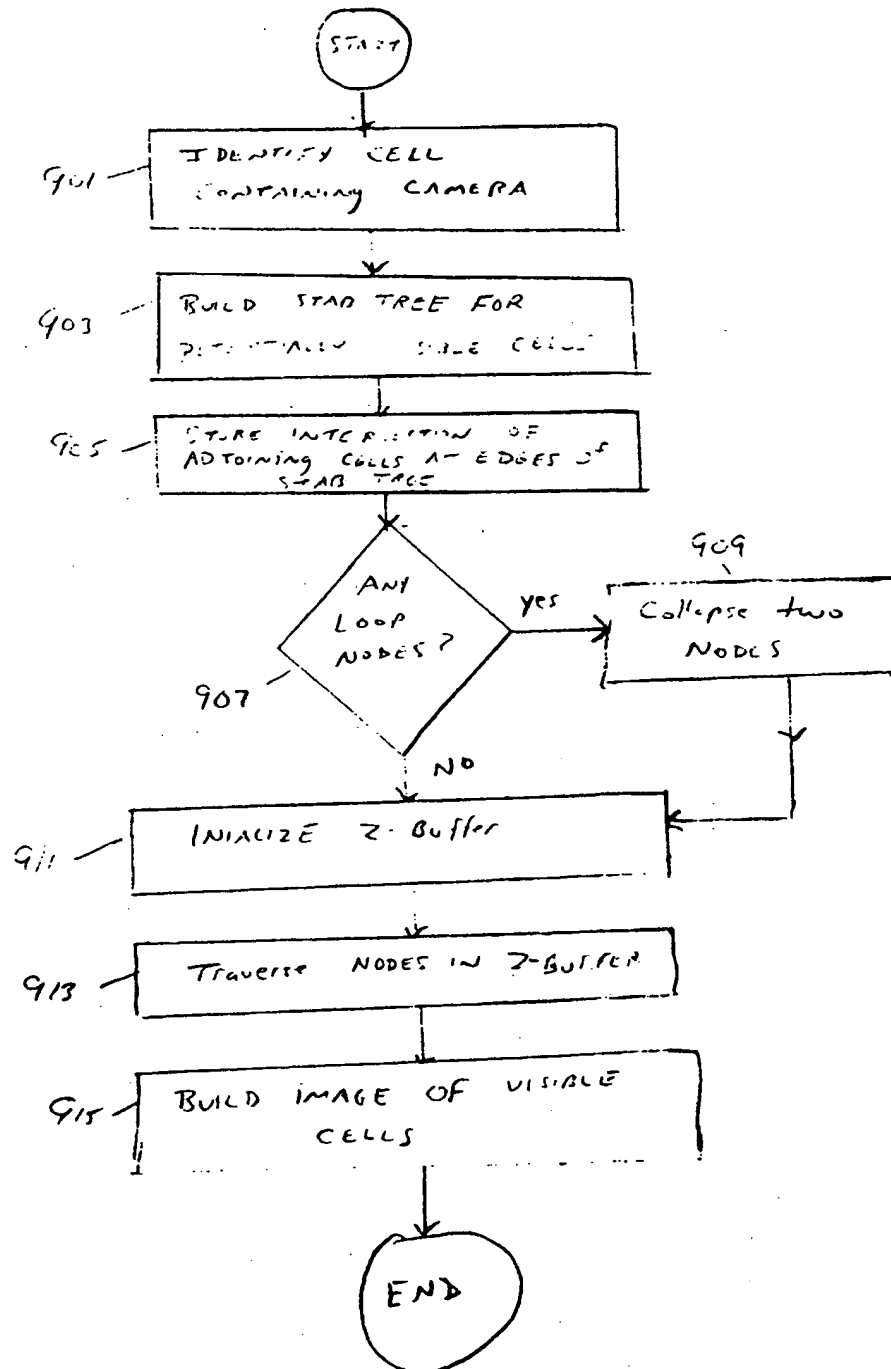 START
901
IDENTIFY CELL
CONTAINING CAMERA
903
BUILD STAB TREE FOR
POTENTIALLY CELLS
905
STORE OF
ADJOINING CELLS AT EDGES OF
STAB TREE
907
ANY
LOOP
NODES?
yes
909
Collapse two
NODES
NO
911
INIALIZE Z-Buffer
913
Traverse NODES IN Z-BUFFER
915
BUILD IMAGE OF VISIBLE
CELLS
END